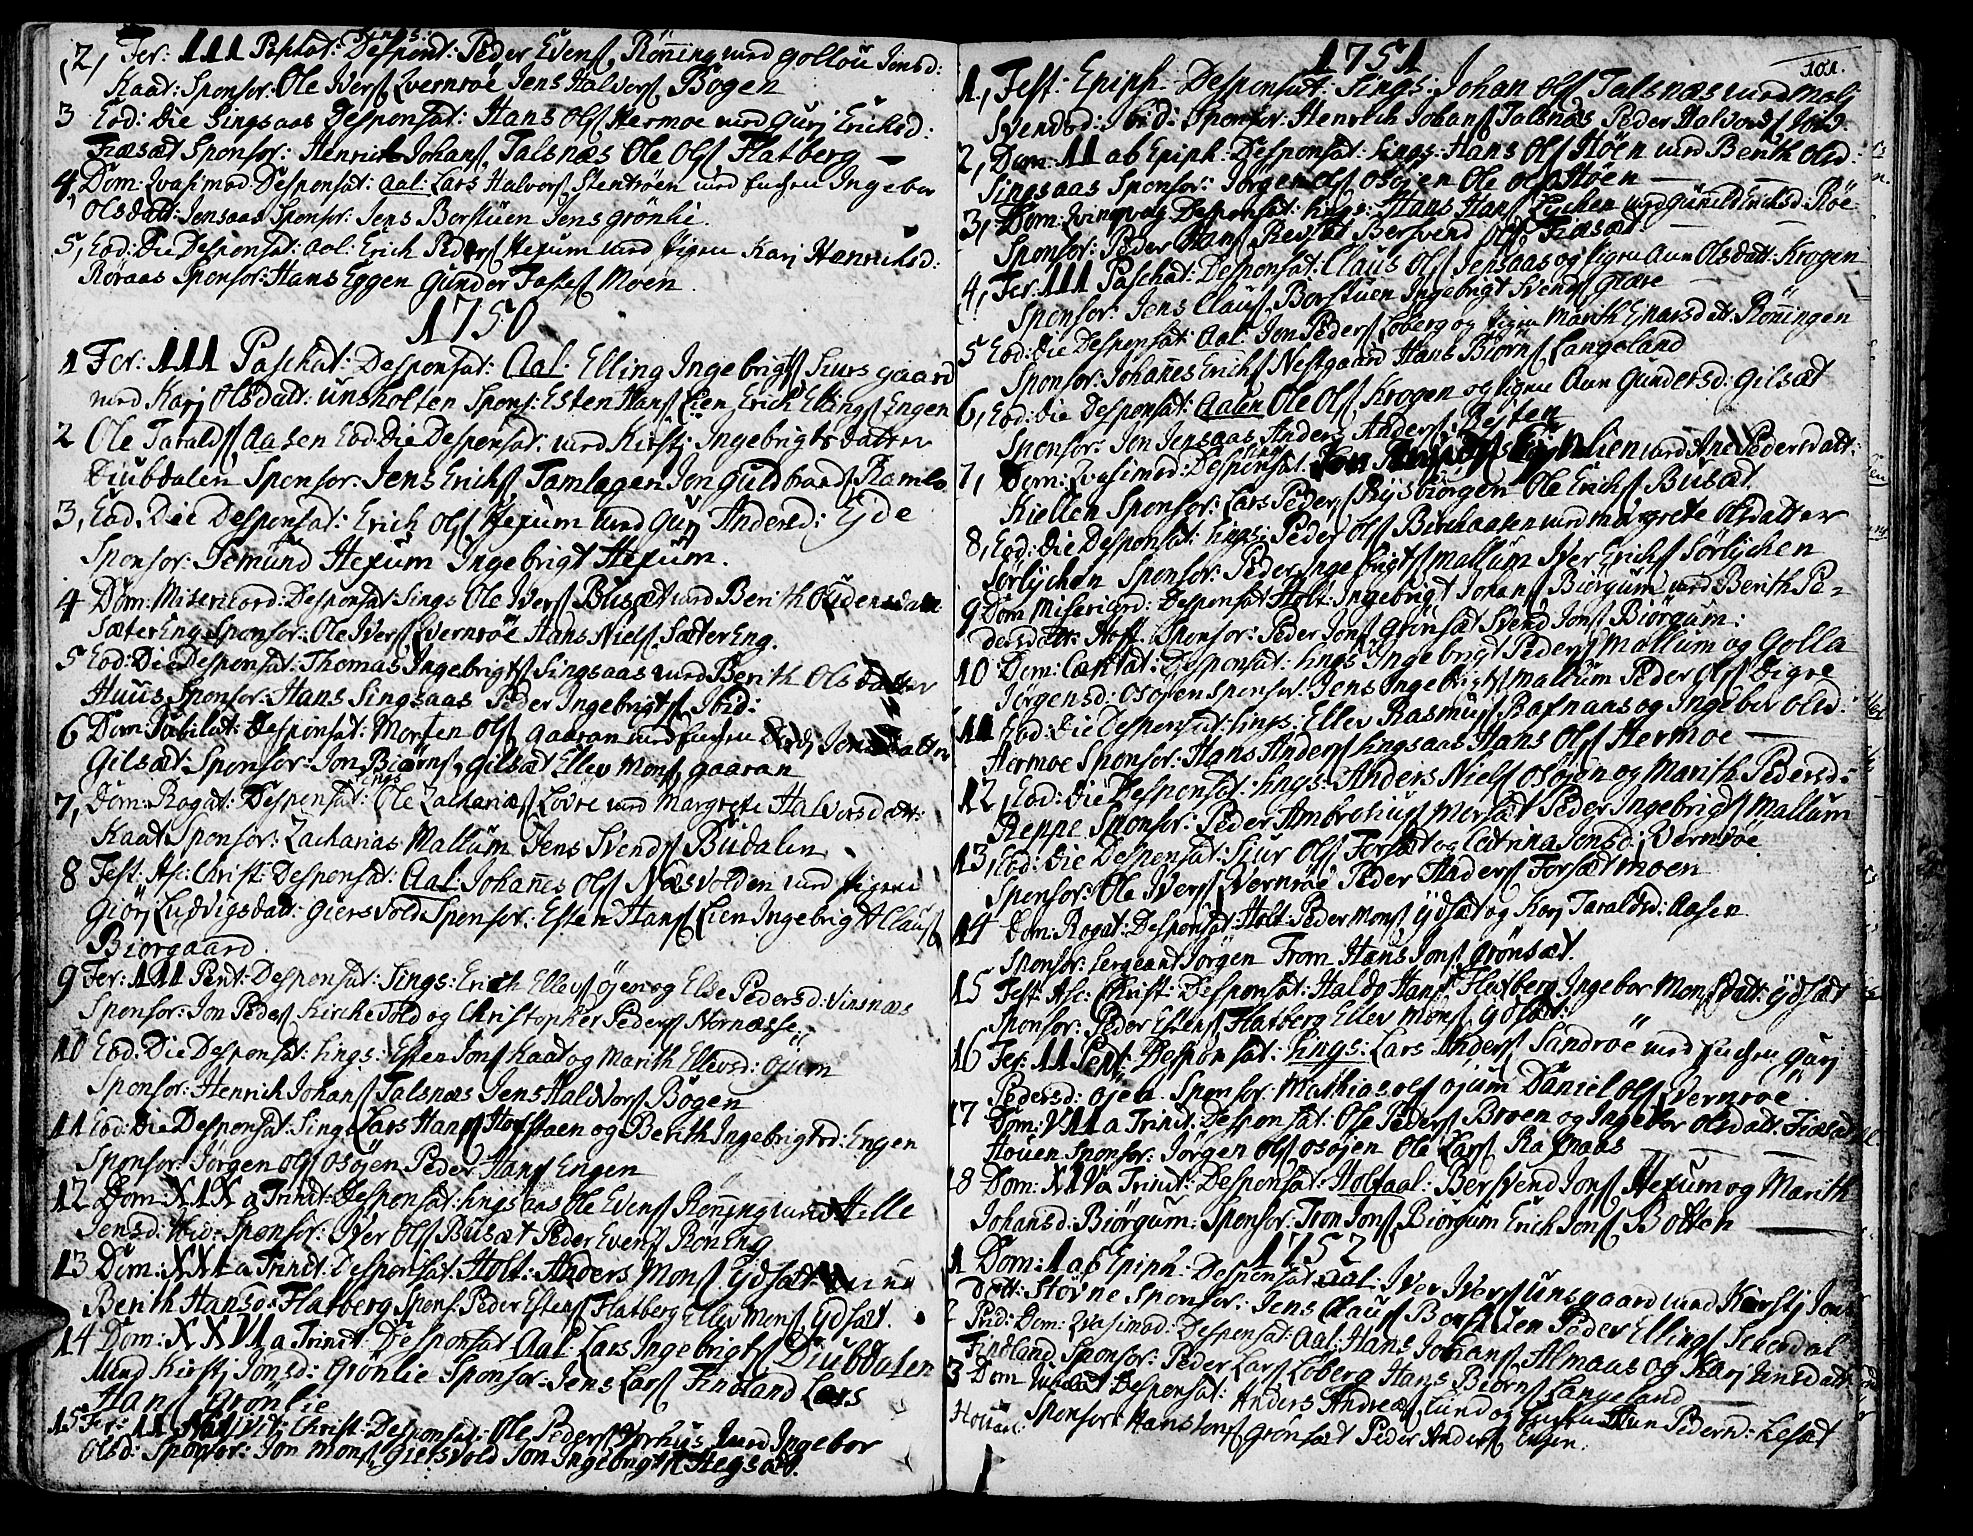 2, Fer: III Paschat: Sings: Desponst: Peder Evens. Rönning med Gollou Jonsd:
Kaat: Sponsor: Ole Ivers. Qvernröe Jens Halvors. Bogen
3 Eod: Die Singsaas Desponsat: Hans Ols. Hermoe med Guri Ericksd:
Fiæsæt Sponsor: Henrich Johans. Talsnæs Ole Ols. Flatberg —
4, Dom: Qvasimod: Desponsat: Aal: Lars Halvors. Stentröen med Enchen Ingebor
Olsdatt: Jensaas Sponsor: Jens Borstuen Jens Grönli.
5, Eod: Die Desponsat: Aal: Erich Peders. Hexum med Pigen Kari Henrichsd:
Röraas Sponsor: Hans Eggen Gunder Moen.
1750
1 Fer: III Paschat: Desponsat: Aal: Elling Ingebrigts. gaard
med Kari Olsdatt: Unsholten Spons: Esten Hans. Lien Erich Ellings. Engen
2 Ole Taralds. Aasen Eod: Die Desponsat: med Kirsti Ingebrigtsdatter
Diubdalen Sponsor: Jens Erichs. Tamlagen Jon Guldbrands. Ramlo
3, Eod. Die Desponsat: Erich Ols. Hexum med Guri Andersd: Ejde
Sponsor: Semund Hexum Ingebrigt Hexum.
4 Dom: Misericord: Desponsat: Sings Ole Ivers. Busæt med Berith
SæterEng Sponsor: Ole Ivers. Qvernröe Hans Niels. SæterEng.
5 Eod: Die Desponsat: Thomas Ingebrigts. Singsaas med Berith Olsdatter
Huus Sponsor: Hans Singsaas Peder Ingebrigts. Ibid:
6 Dom Jubilat: Desponsat: Morten Ols. Gaaran med Enchen
Gilsæt: Sponsor: Jon Biörns. Gilsæt Ellev Mons. Gaaran
7, Dom: Rogat: Desponsat: Sings Ole Zacharias. Lovre med Margrete Halvorsdatt:
Kaat Sponsor: Zacharias Mallum Jens Svends. Budalen
8 Fest: Asc: Christ: Desponsat: Aal: Johanes Ols. Næsvolden med Pigen
Giöri Ludvigsdatt: Giersvold Sponsor: Esten Hans. Lien Ingebrigt Claus.
Biörgaard
9 Fer: III Pent: Desponsat: Sings: Erich Ellevs. Öjen og Else Pedersd: Vinsnæs
Sponsor: Jon Peders. Kirchevold og Christopher Peders. Nornæsse
10 Eod: Die Desponsat: Sings: Esten Jons. Kaat og Marith Ellevsd: Ojum
Sponsor: Henrich Johans. Talsnæs Jens Haldvors. Bogen
11 Eod: Die Desponsat: Sings Lars Hans. Hofstaen og Berith Ingebrigtsd: Engen
Sponsor: Jörgen Ols. Osöjen Peder Hans. Engen
12 Dom: XIX a Trinit: Desponsat: Singsaas Ole Evens. Röning med Helle
Jensd: Ibid: Sponsor: Iver Ols. Busæt Peder Evens. RönEng
13 Dom: XXI a Trinit: Desponsat: Holt: Anders Mons. Ydsæt
Berith Hansd: Flatberg Spons: Peder Estens. Flatberg Ellev Mons. Ydsæt.
14 Dom: XXVI a Trinit: Desponsat Aal: Lars Ingebrigts. Diubdalen
med Kirsti Jonsd: Grönlie Sponsor: Jens Lars. Findland Lars
Hans. Grönlie
15 Fer: II Nativit: Christ: Desponsat: Ole Peders. med Ingebor
Olsd: Sponsor: Jon Mons. Giersvold Jon Ingebrigts. Hegsæt.
1751
101.
1, Fest: Epiph: Desponsat: Sings: Johan Ols. Talsnæs med Mali
Svendsd: Ibid: Sponsor: Henrich Johans. Talsnæs Peder Halvords. Ibid:
2, Dom: II ab Epiph: Desponsat: Sings: Hans Ols. Höen med Berith Olsd:
Singsaas Sponsor: Jörgen Ols. Osöjen Ole Ols. Höen —
3, Dom: Qvinqvag Desponsat: Sings: Hans Hans. Lychen med Gunild Erichsd: Röe
Sponsor: Peder Hans. Refsæt Bersvend Ols. Fiæsæt —
4, Fer: III Paschat: Desponsat: Claus Ols. Jensaas og Pigen Ann Olsdatt: Krogen
Sponsor: Jens Claus. Borstuen Ingebrigt Svends. Græe
5 Eod: Die Desponsat: Aal: Jon Peders. Loberg og Pigen Marith Ejnarsdatt: Röningen
Sponsor: Johanes Erichs. Nestgaard Hans Biörns. Langeland
6, Eod: Die Desponsat: Aalen Ole Ols. Krogen og Pigen Ann Gundersd: Gilsæt
Sponsor: Jon Jensaas Anders Anders. Resten
7, Dom: Qvasimod: Desponsat: Sings lien med Ane Pedersdatt:
Kiellen Sponsor: Lars Peders. Rysbiörgen Ole Erichs. Busæt.
8, Eod: Die Desponsat: Sings: Peder Ols. Birchaasen med Margrete Olsdatter
Sörlychen Sponsor: Peder Ingebrigts. Mallum Iver Erichs. Sörlychen
9 Dom Misericord: Desponsat Holt: Ingebrigt Johans. Biörgum med Berith Pe-
dersdatt: Hoff. Sponsor: Peder Jons. Grönsæt Svend Jons. Biörgum:
10 Dom: Cantat: Desponsat: Sings Ingebrigt Peders. Mallum og Golla
Jörgensd: Osöjen Sponsor: Jens Ingebrigts. Mallum Peder Ols. Digre
11 Eod: Die Desponsat: Sings: Ellev Rasmus. Rafnaas og Ingebor Olsd:
Hermoe Sponsor: Hans Anders. Singsaas Hans Ols. Hermoe —
12, Eod: Die Desponsat: Sings: Anders Niels. Osöjen og Marith Pedersd:
Reppe Sponsor: Peder Ambrosius. Morsæt Peder Ingebrigts. Mallum
13, Eod: Die Desponsat: Siur Ols. Forsæt og Catrina Jonsd: Qvernröe
Sponsor: Ole Ivers. Qvernröe Peder Haders. Forsætmoen
14 Dom: Rogat: Desponsat Holt: Peder Mons. Ydsæt og Kari Taraldsd: Aasen
Sponsor: Sergeant Jörgen From Hans Jons. Grönsæt.
15 Fest: Asc: Christ: Desponsat: Haldo Hans. Flatberg Ingebor Monsdatt: Ydsæt
Sponsor: Peder Estens. Flatberg Ellev Mons. Ydsæt:
16 Fer: II Pent: Desponsat: Sings: Lars Anders. Sandröe med Enchen Guri
Pedersd: Öjen. Sponsor: Mathias Ols. Ojum Daniel Ols. Qvernröe
17 Dom: VII a Trinit: Desponsat: Ole Peders. Broen og Ingebor Olsdatt: Fiæsæt
Houen Sponsor: Jörgen Ols. Osöjen Ole Lars. Rafnaas —
18 Dom: XIV a Trinit: Desponsat: Holtaal: Bersvend Jons. Hexum og Marith
Johansd: Biörgum: Sponsor: Tron Jons. Biörgum Erich Jons. Botten —
1752
1 Dom: I ab Epiph: Desponsat: Aal: Iver Ivers. Unsgaard med Kirsti Jons
datt: Stövne Sponsor: Jens Claus. Borstuen Peder Ellings.
2 Prid: Dom: Qvasimod: Desponsat: Aal: Hans Johans. Almaas og Kari
Findland Sponsor: Peder Lars. Loberg Hans Biörns. Langeland —
3 Dom Jubilat Desponsat: Anders Andreas. Lund og Enchen Ann Pedersd: Lesæt
Holtaal: Sponsor: Hans Jons. Grönsæt Peder Anders. Engen.